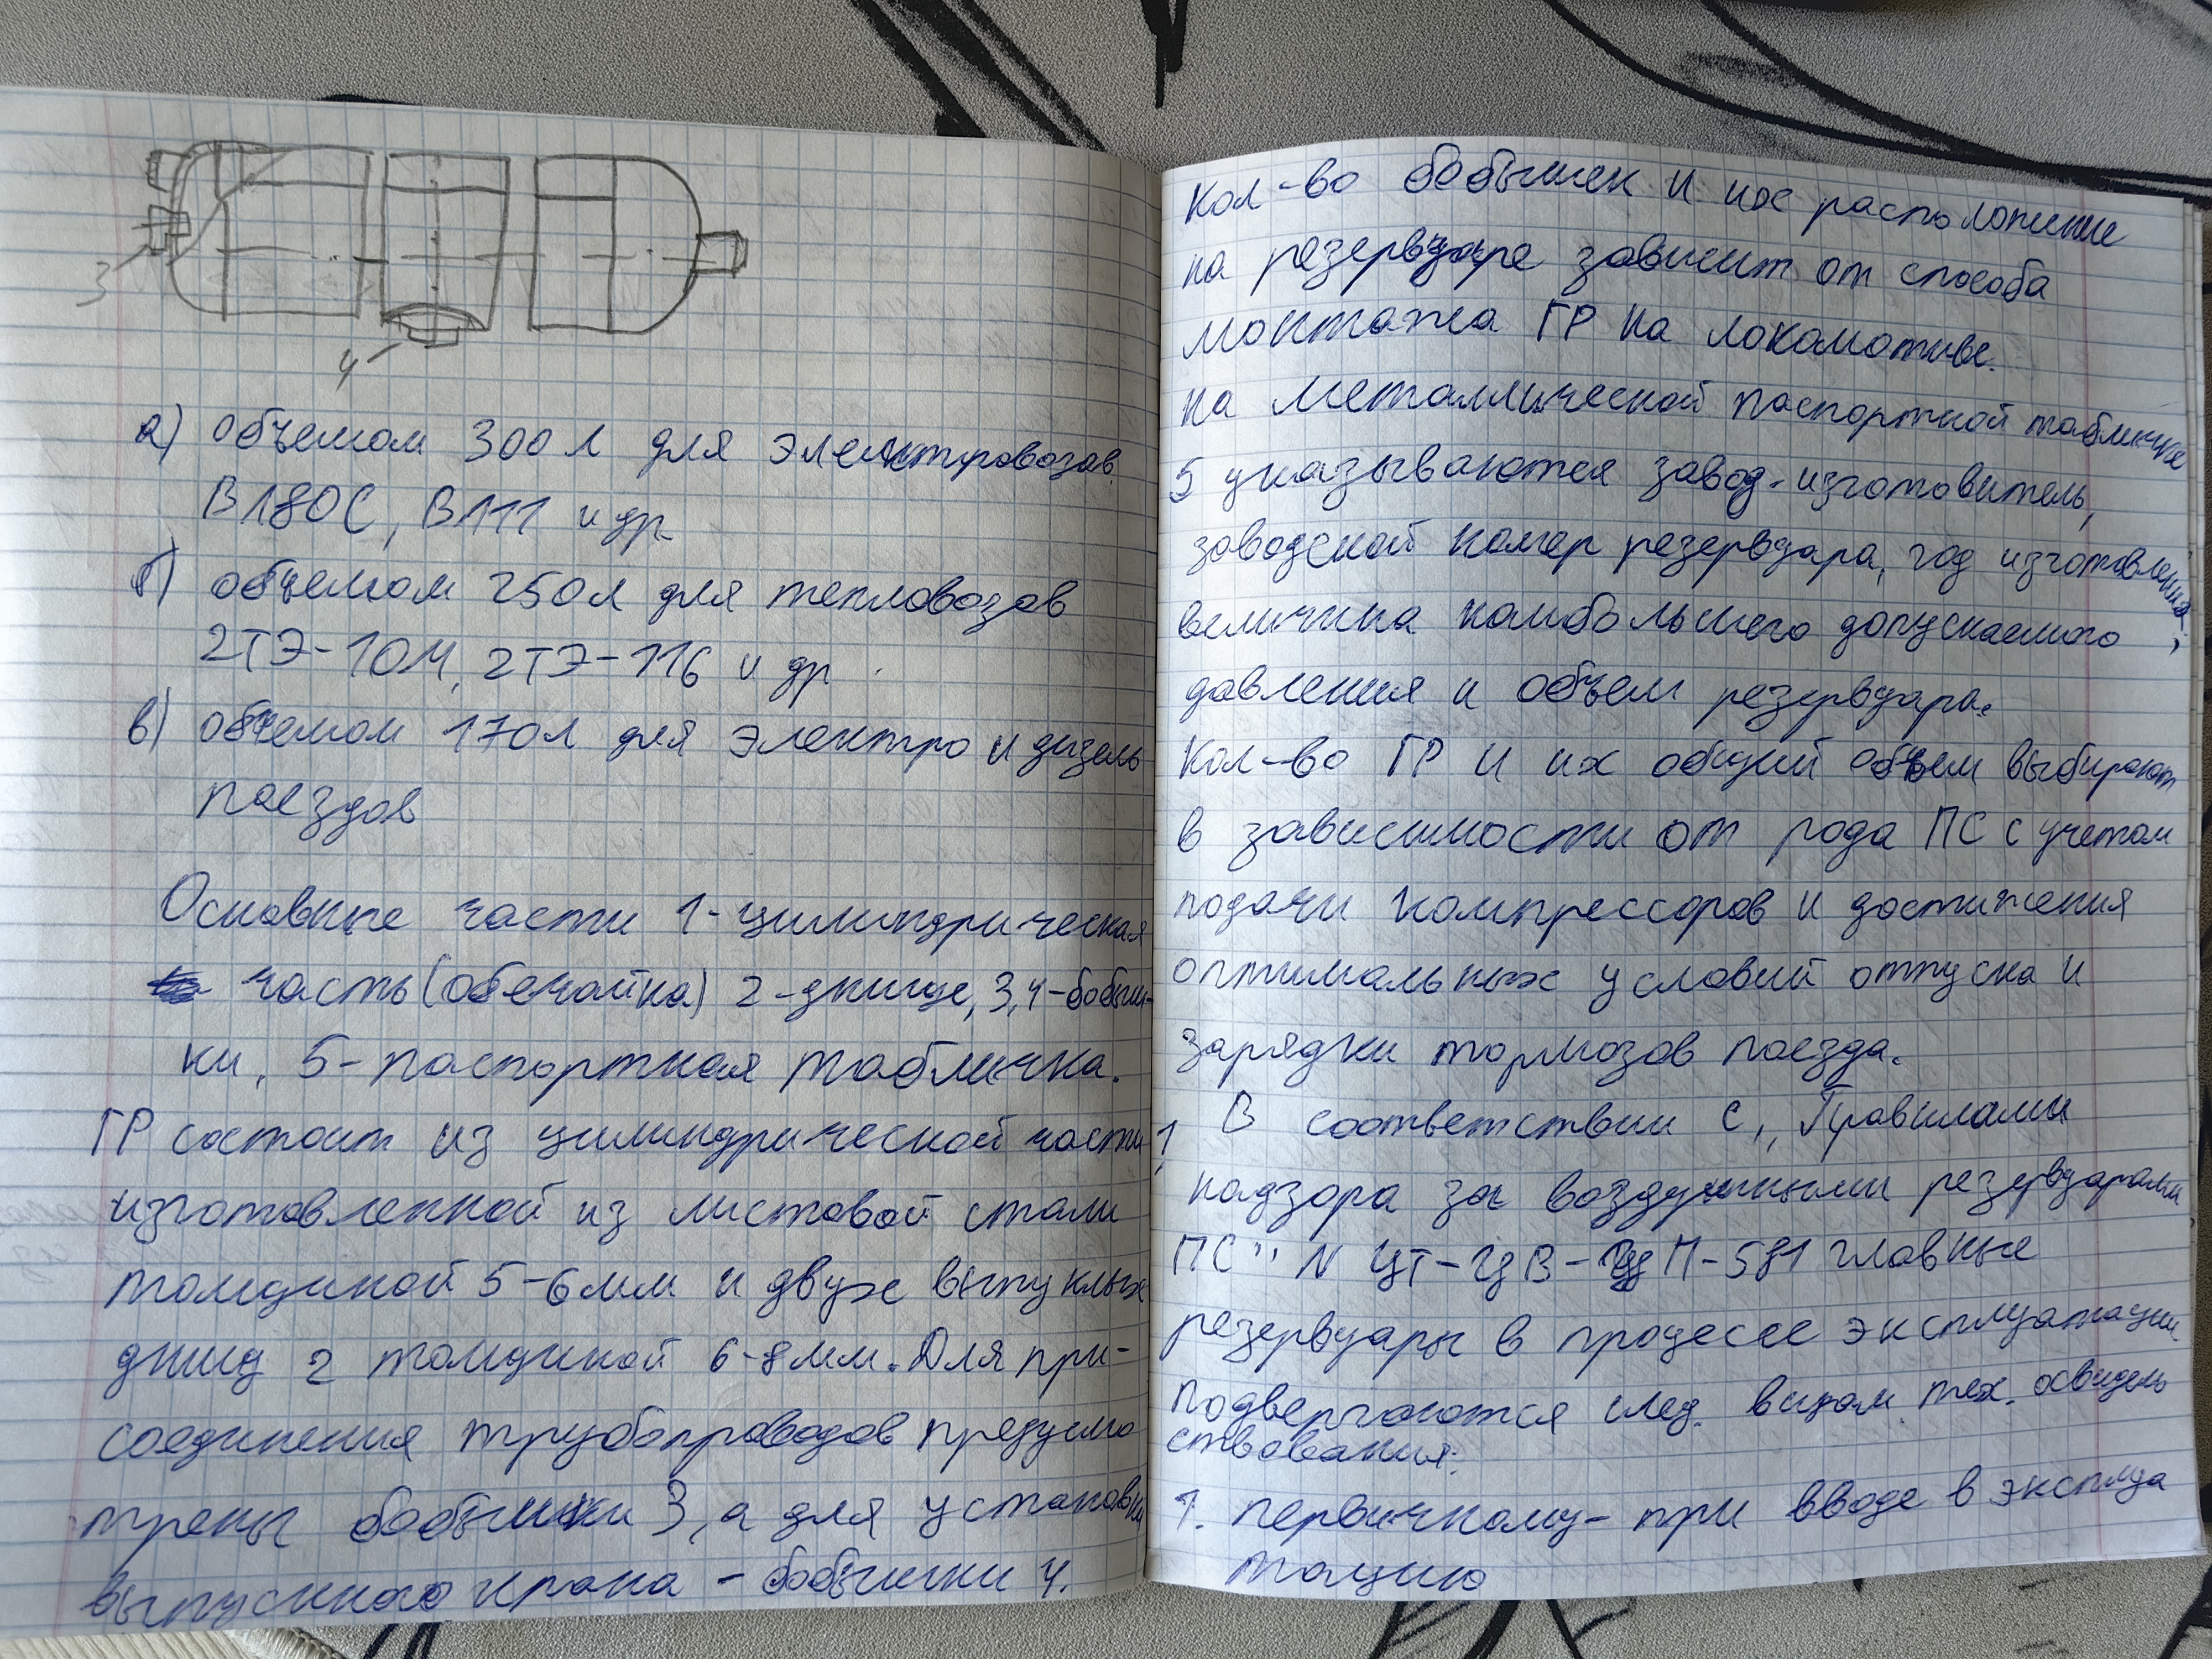 3
4
а) объемом 300 л для электровозов
ВЛ80С, ВЛ11 и др.
б) объемом 250л для тепловозов
2ТЭ-10М, 2ТЭ-116 и др.
в) объемом 170л для электро и дизель
поездов
Основные части 1-цилиндрическая
часть (обечайка) 2-днище, 3,4-бобыш-
ки, 5-паспортная табличка.
ГР состоит из цилиндрической части 1,
изготовленной из листовой стали
толщиной 5-6мм и двух выпуклых
днищ 2 толщиной 6-8мм. Для при-
соединения трубопроводов предусмо
трены бобышки 3, а для установки
выпускного крана - бобышки 4.
Кол-во бобышек и их расположение
на резервуаре зависит от способа
монтажа ГР на локомотиве.
на металлической паспортной табличке
5 указываются завод-изготовитель,
заводской номер резервуара, год изготовления,
величина наибольшего допускаемого
давления и объем резервуара.
Кол-во ГР и их общий объем выбирают
в зависимости от рода ПС с учетом
подачи компрессоров и достижения
оптимальных условий отпуска и
зарядки тормозов поезда.
В соответствии с „Правилами
надзора за воздушными резервуарами
ПС" N ЦТ-ЦВ-ЦП-581 главные
резервуары в процессе эксплуатации
подвергаются след. видам тех. освидель
ствования:
1. первичному- при вводе в эксплуа
тацию